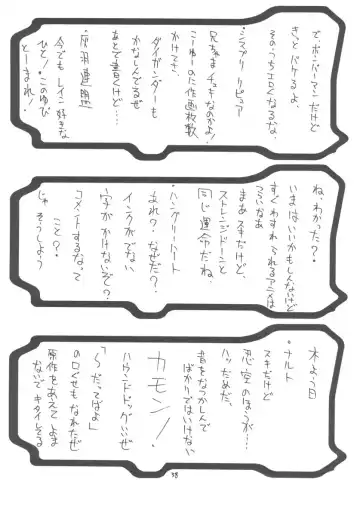 で、ボンバーマンだけど
きっとバケるよ、
そのうちエロくなるな、
・シスプリ リピュア
兄ちゃまチェキなのかよ!
こーゆーのに作画枚数
かけてさ、
ダイガンダーも
かなしんでるぜ
あとで書くけど…
・灰羽連盟
今でもレイン好きな
ひと!このゆび
とーまれ!
ね、わかった?・
いまはいいかもしんないけど
すぐわすれられるアニメは
つらいなあ
まあスキだけど、
ストレンジドーンと
同じ運命だね、
・ハングリーハート
あれ?なぜだ?
インクがでない
字がかけないぞ?
コメントするなって
こと?・
じゃそうしよう
木よう日
・ナルト
スキだけど
忍空のほうが
ハッだめだ、
昔をなつかしんで
ばかりではいけない
カモン!
ハウンドドッグいいぜ
「〜だってばよ」
の口ぐせもなれたぜ
原作をあえてよま
ないでキタイしてる
38